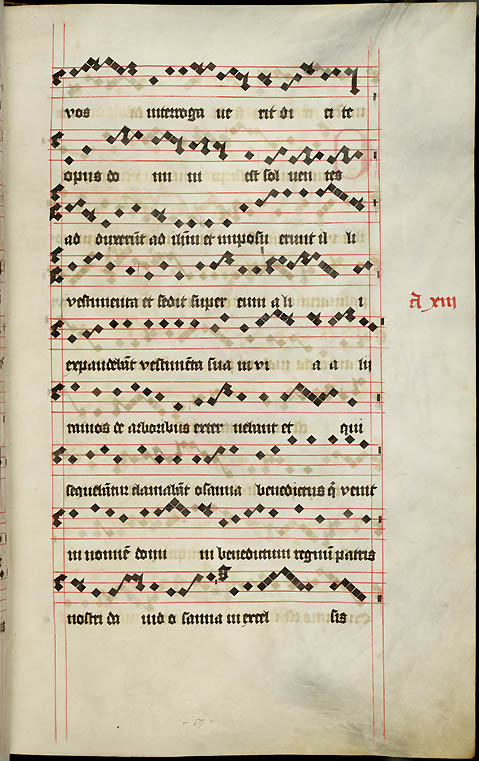 vos interroga ue rit di ci te
opus do mi ni est sol uen tes
ad duxerūt ad ihm̄ et imposu erunt il li
vestimenta et sedit super eum a li i
expandebāt vestimēta sua in vi a a lij
ramos de arboribus exter nebant et qui
sequebātur clamabāt osanna benedictus q̄ venit
in nomīe domi ni benedictum regnū patris
nostri da uid o sanna in excel sis
- 67 -